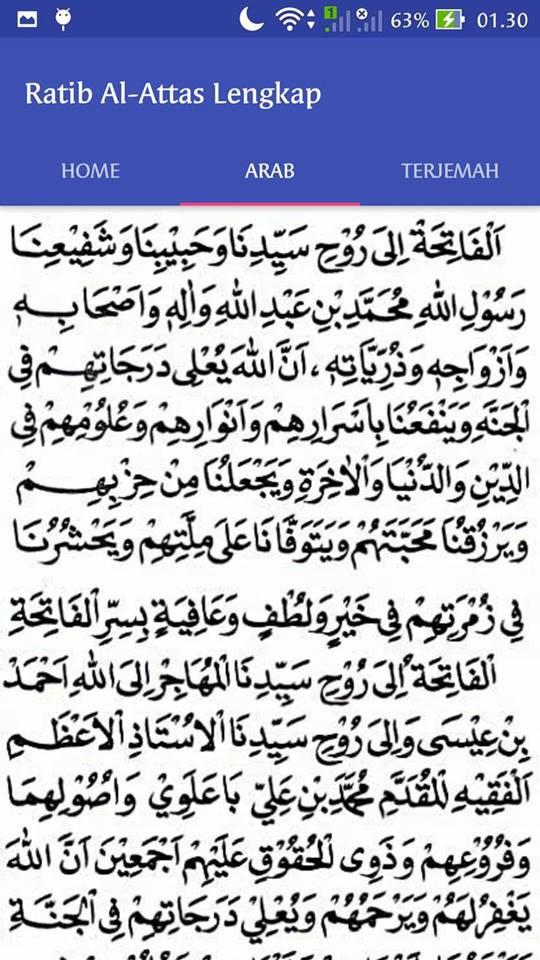 63% 01.30
Ratib Al-Attas Lengkap
HOME ARAB TERJEMAH
اَلْفَاتِحَةُ اِلَى رُوْحِ سَيِّدِنَا وَحَبِيْبِنَا وَشَفِيْعِنَا
رَسُوْلِ اللهِ مُحَمَّدِ بْنِ عَبْدِ اللهِ وَاٰلِهٖ وَاَصْحَابِهٖ
وَاَزْوَاجِهٖ وَذُرِّيَّاتِهٖ، اَنَّ اللهَ يُعْلِى دَرَجَاتِهِمْ فِى
الْجَنَّهِ وَيَنْفَعُنَا بِاَسْرَارِهِمْ وَاَنْوَارِهِمْ وَعُلُوْمِهِمْ فِى
الدِّيْنِ وَالدُّنْيَا وَالْاٰخِرَةِ وَيَجْعَلُنَا مِنْ حِزْبِهِمْ
وَيَرْزُقُنَا مَحَبَّتَهُمْ وَيَتَوَفَّانَا عَلَى مِلَّتِهِمْ وَيَحْشُرُنَا
فِى زُمْرَتِهِمْ فِى خَيْرٍ وَلُطْفٍ وَعَافِيَةٍ بِسِرِّ الْفَاتِحَةِ
اَلْفَاتِحَةُ اِلَى رُوْحِ سَيِّدِنَا الْمُهَاجِرْ اِلَى اللهِ اَحْمَدْ
بِنْ عِيْسَى وَاِلَى رُوْحِ سَيِّدِنَا الْاُسْتَاذِ الْاَعْظَمِ
اَلْفَقِيْهِ الْمُقَدَّمِ مُحَمَّدِ بْنِ عَلِيّ بَاعَلَوِيْ وَاُصُوْلِهِمَا
وَفُرُوْعِهِمْ وَذَوِى الْحُقُوْقِ عَلَيْهِمْ اَجْمَعِيْنَ اَنَّ اللهَ
يَغْفِرُ لَهُمْ وَيَرْحَمُهُمْ وَيُعْلِيْ دَرَجَاتِهِمْ فِى الْجَنَّةِ